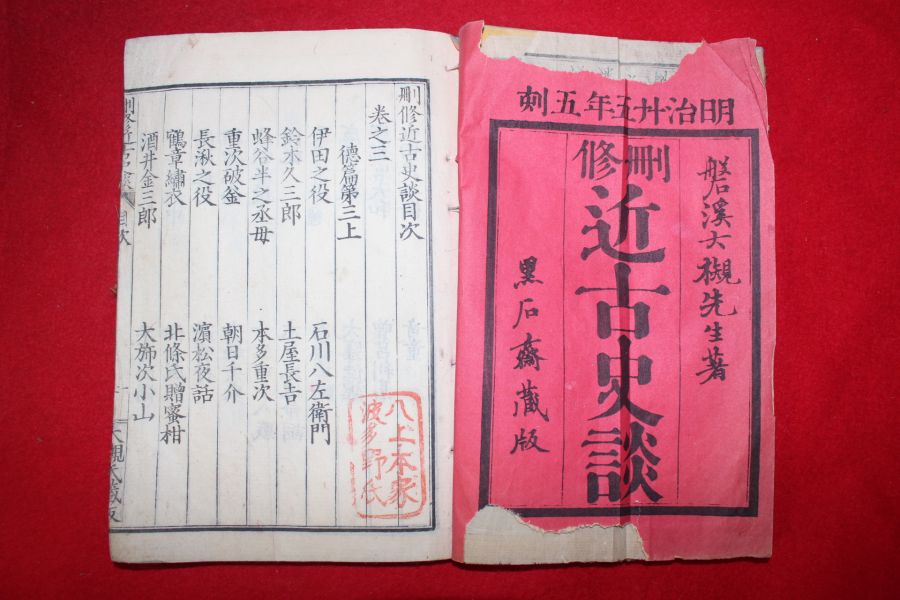 明治廿五年五刻
磐溪大槻先生著
刪修
近古史談
黒石齋藏版
刪修近古史談目次
卷之三
德篇第三上
伊田之役
石川八左衛門
鈴木久三郎
土屋長吉
蜂谷半之丞母
本多重次
重次破釜
朝日千介
長湫之役
濱松夜話
鶴章繡衣
北條氏贈蜜柑
酒井金三郎
大斾次小山
八上本家
波多野氏
目次
大槻氏藏版